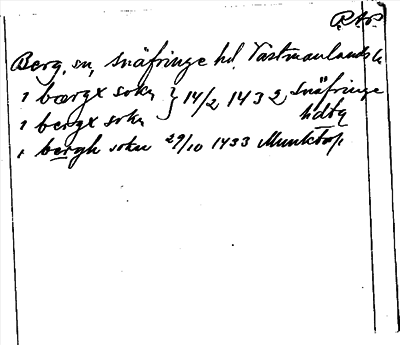 R.A.P.
Berg, sn, Snäfringe hd, Västmanlands l.
i bærgx sokn } 14/2 1432, Snäfringe
i bergx sokn hdtg
i bergh soken 29/10 1433 Munktorp.